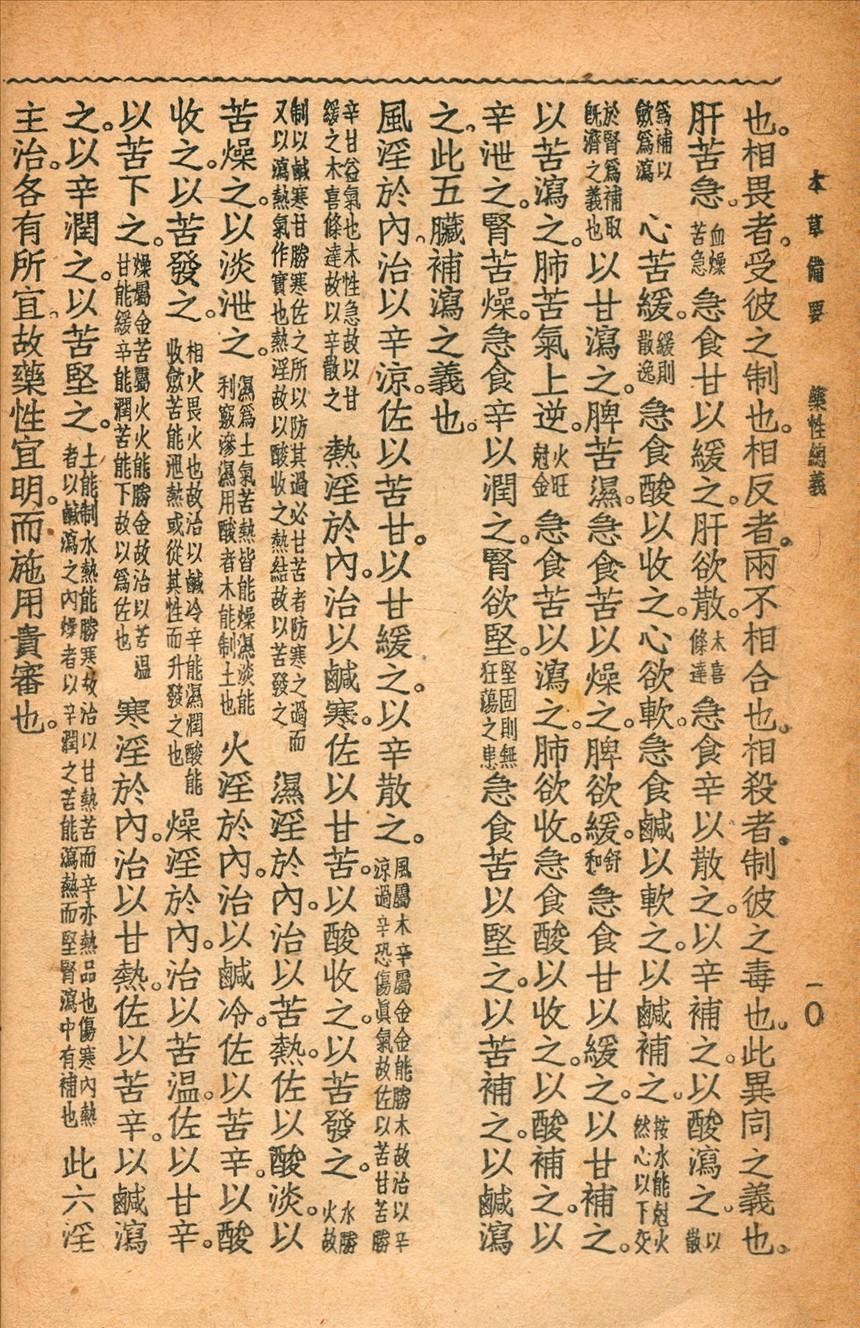 本草備要　藥性總義　一〇
也。相畏者。受彼之制也。相反者。兩不相合也。相殺者。制彼之毒也。此異同之義也。
肝苦急。血燥苦急急食甘以緩之。肝欲散。木喜條達急食辛以散之。以辛補之。以酸瀉之。以散
爲補以斂爲瀉　心苦緩。緩則散逸急食酸以收之。心欲軟。急食鹹以軟之。以鹹補之。按水能尅火然心以下交
於腎爲補取旣濟之義也以甘瀉之。脾苦濕。急食苦以燥之。脾欲緩。舒和急食甘以緩之。以甘補之。
以苦瀉之。肺苦氣上逆。火旺尅金急食苦以瀉之。肺欲收。急食酸以收之。以酸補之。以
辛泄之。腎苦燥。急食辛以潤之。腎欲堅。堅固則無狂蕩之患急食苦以堅之。以苦補之。以鹹瀉
之。此五臟補瀉之義也。
風淫於內。治以辛涼。佐以苦甘。以甘緩之。以辛散之。風屬木辛屬金金能勝木故治以辛涼過辛恐傷眞氣故佐以苦甘苦勝
辛甘益氣也木性急故以甘緩之木喜條達故以辛散之　熱淫於內。治以鹹寒。佐以甘苦。以酸收之。以苦發之。水勝火故
制以鹹寒甘勝寒佐之所以防其過必甘苦者防寒之過而又以瀉熱氣作實也熱淫故以酸收之熱結故以苦發之　濕淫於內。治以苦熱。佐以酸淡。以
苦燥之。以淡泄之。濕爲土氣苦熱皆能燥濕淡能利竅滲濕用酸者木能制土也　火淫於內。治以鹹冷。佐以苦辛。以酸
收之。以苦發之。相火畏火也故治以鹹冷辛能濕潤酸能收斂苦能泄熱或從其性而升發之也　燥淫於內。治以苦温。佐以甘辛。
以苦下之。燥屬金苦屬火火能勝金故治以苦温甘能緩辛能潤苦能下故以爲佐也　寒淫於內。治以甘熱。佐以苦辛。以鹹瀉
之。以辛潤之。以苦堅之。土能制水熱能勝寒故治以甘熱苦而辛亦熱品也傷寒內熱者以鹹瀉之內燥者以辛潤之苦能瀉熱而堅腎瀉中有補也　此六淫
主治。各有所宜。故藥性宜明。而施用貴審也。